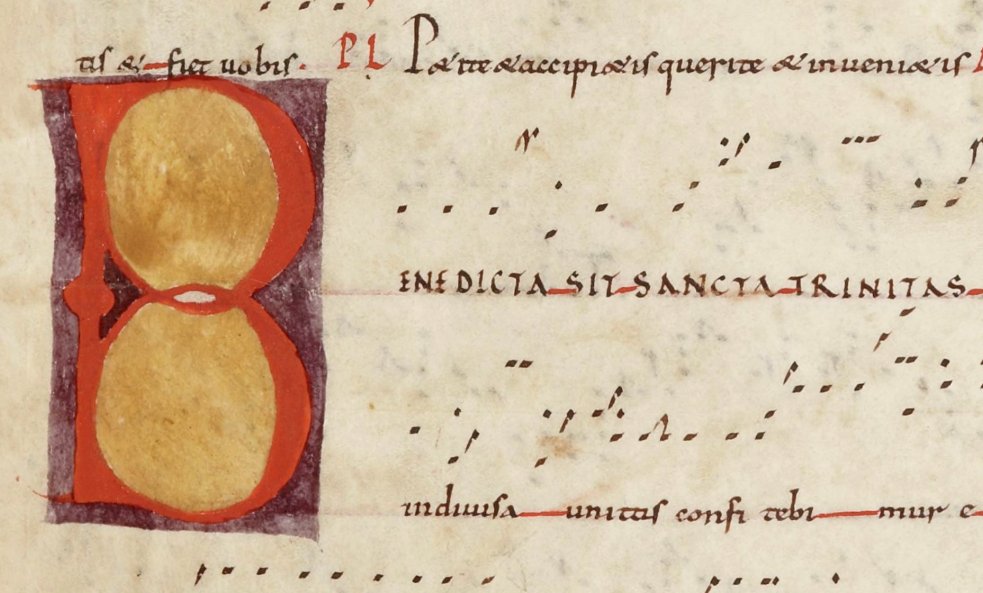 tis & fiet uobis. PL P&ite & accipi&is querite & inueni&is
BENEDICTA SIT SANCTA TRINITAS
indiuisa unitas confitebimur e